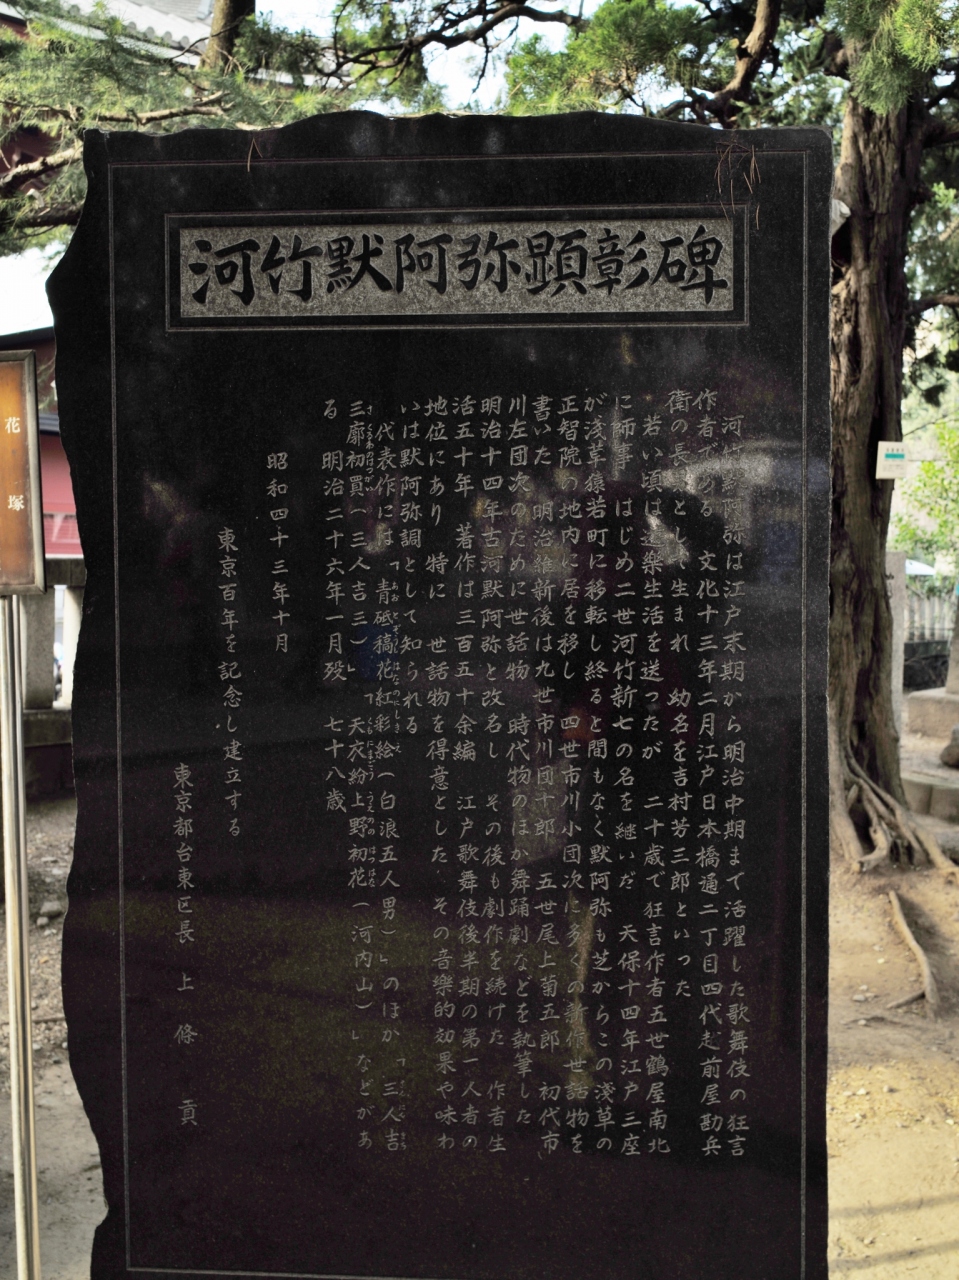 河竹默阿弥顕彰碑
河竹默阿弥は江戸末期から明治中期まで活躍した歌舞伎の狂言
作者である 文化十三年二月江戸日本橋通二丁目四代越前屋勘兵
衛の長男として生まれ 幼名を吉村芳三郎といった
若い頃は道樂生活を送つたが 二十歳で狂言作者五世鶴屋南北
に師事 はじめ二世河竹新七の名を継いだ 天保十四年江戸三座
が浅草猿若町に移転し終ると間もなく默阿弥も芝からこの浅草の
正智院の地内に居を移し 四世市川小団次に多くの新作世話物を
書いた 明治維新後は九世市川団十郎 五世尾上菊五郎 初代市
川左団次のために世話物 時代物のほか舞踊劇などを執筆した
明治十四年古河默阿弥と改名し その後も劇作を続けた 作者生
活五十年 著作は三百五十余編 江戸歌舞伎後半期の第一人者の
地位にあり 特に 世話物を得意とした．その音樂的効果や味わ
いは默阿弥調として知られる
代表作には「青砥稿花紅彩絵（白浪五人男）」のほか「三人吉
三廓初買（三人吉三）」「天衣紛上野初花（河内山）」などがあ
る 明治二十六年一月殁 七十八歳
昭和四十三年十月
東京百年を記念し建立する
東京都台東区長 上條 貢
花塚